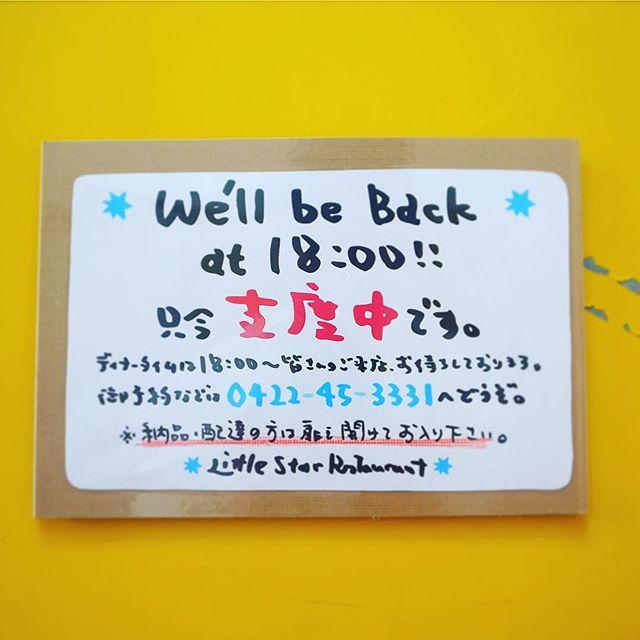 We'll be Back
at 18:00!!
只今 支度中です。
ディナータイムは18:00〜皆さんのご来店、お待ちしております。
御予約などは 0422-45-3331へどうぞ。
※納品・配達の方は扉を開けてお入り下さい。
Little Star Restaurant